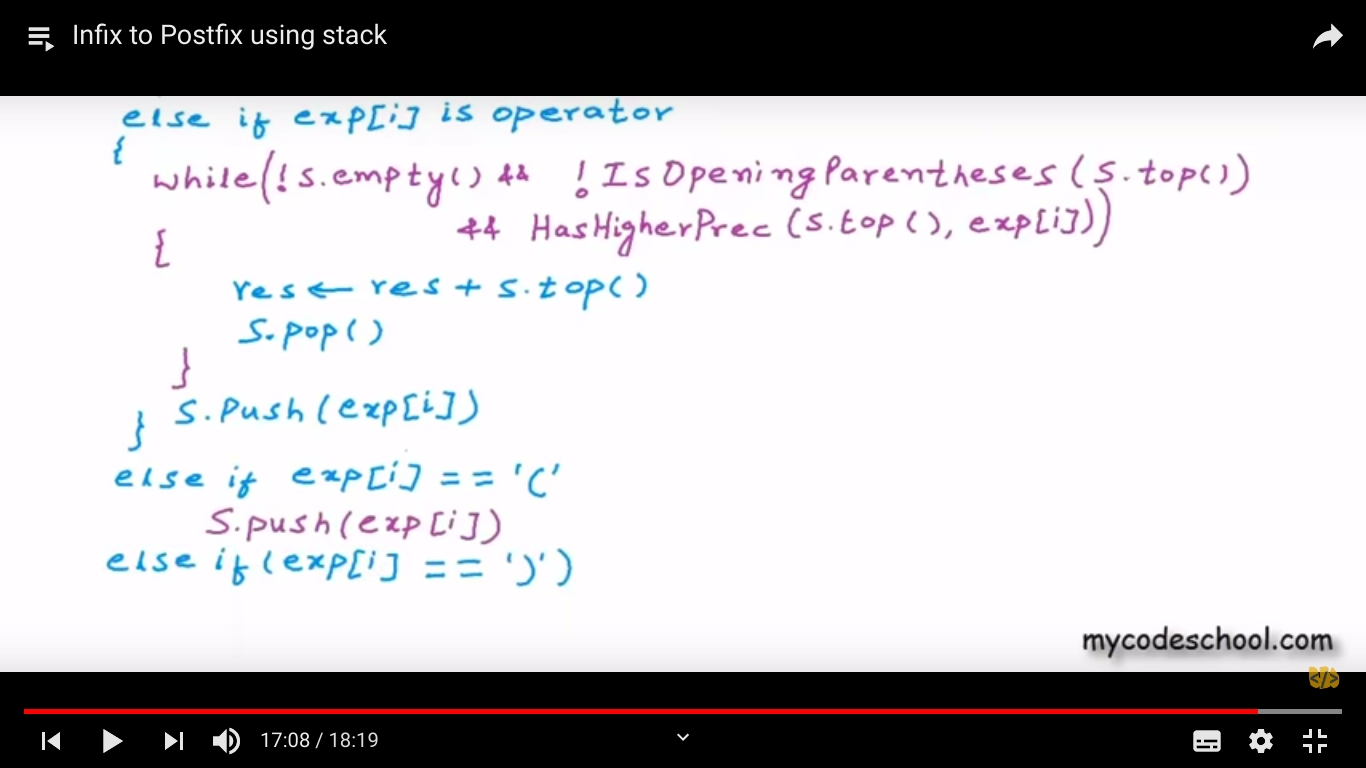 Infix to Postfix using stack
else if exp[i] is operator
{
while(!s.empty() && !IsOpeningParentheses(s.top())
{ && HasHigherPrec(s.top(), exp[i]))
res ← res + s.top()
s.pop()
}
} s.push(exp[i])
else if exp[i] == '('
s.push(exp[i])
else if(exp[i] == ')')
mycodeschool.com
</>
17:08 / 18:19